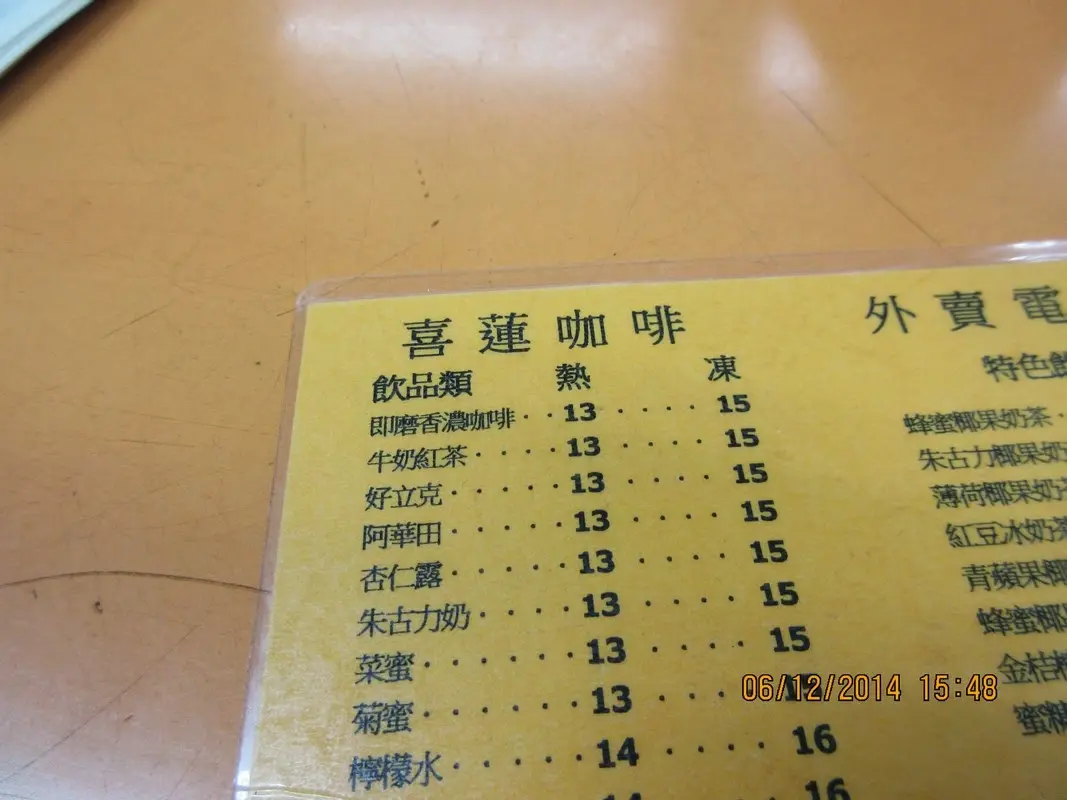 喜蓮咖啡
飲品類 熱 凍
即磨香濃咖啡 · · 13 · · · · 15
牛奶紅茶 · · · · 13 · · · · 15
好立克 · · · · · 13 · · · · 15
阿華田 · · · · · 13 · · · · 15
杏仁露 · · · · · 13 · · · · 15
朱古力奶 · · · · 13 · · · · 15
菜蜜 · · · · · · 13 · · · · 15
菊蜜 · · · · · · 13 · · · ·
檸檬水 · · · · · 14 · · · · · 16
14 16
外賣電
特色飲
蜂蜜椰果奶茶 ·
朱古力椰果奶
薄荷椰果奶茶
紅豆冰奶茶
青蘋果椰
蜂蜜椰
金桔
蜜
06/12/2014 15:48